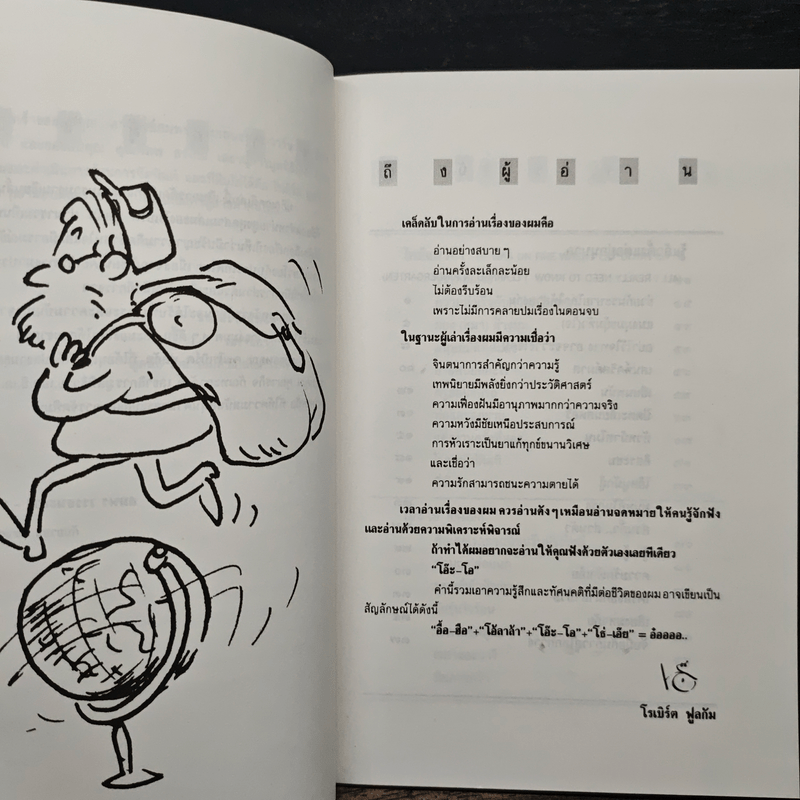 ถึงผู้อ่าน
เคล็ดลับในการอ่านเรื่องของผมคือ
อ่านอย่างสบาย ๆ
อ่านครั้งละเล็กละน้อย
ไม่ต้องรีบร้อน
เพราะไม่มีการคลายปมเรื่องในตอนจบ
ในฐานะผู้เล่าเรื่องผมมีความเชื่อว่า
จินตนาการสำคัญกว่าความรู้
เทพนิยายมีพลังยิ่งกว่าประวัติศาสตร์
ความเฟื่องฝันมีอานุภาพมากกว่าความจริง
ความหวังมีชัยเหนือประสบการณ์
การหัวเราะเป็นยาแก้ทุกข์ขนานวิเศษ
และเชื่อว่า
ความรักสามารถชนะความตายได้
เวลาอ่านเรื่องของผม ควรอ่านดัง ๆ เหมือนอ่านจดหมาย ให้คนรู้จักฟัง
และอ่านด้วยความพิเคราะห์พิจารณ์
ถ้าทำได้ผมอยากจะอ่านให้คุณฟังด้วยตัวเองเลยทีเดียว
"โอ๊ะ-โอ"
คำนี้รวมเอาความรู้สึกและทัศนคติที่มีต่อชีวิตของผม อาจเขียนเป็น
สัญลักษณ์ได้ดังนี้
"อื้อ-ฮือ"+"โอ้ลาล้า"+"โอ๊ะ-โอ"+"โธ่-เอ๊ย" = อ๋ออออ..
โรเบิร์ต ฟูลกัม